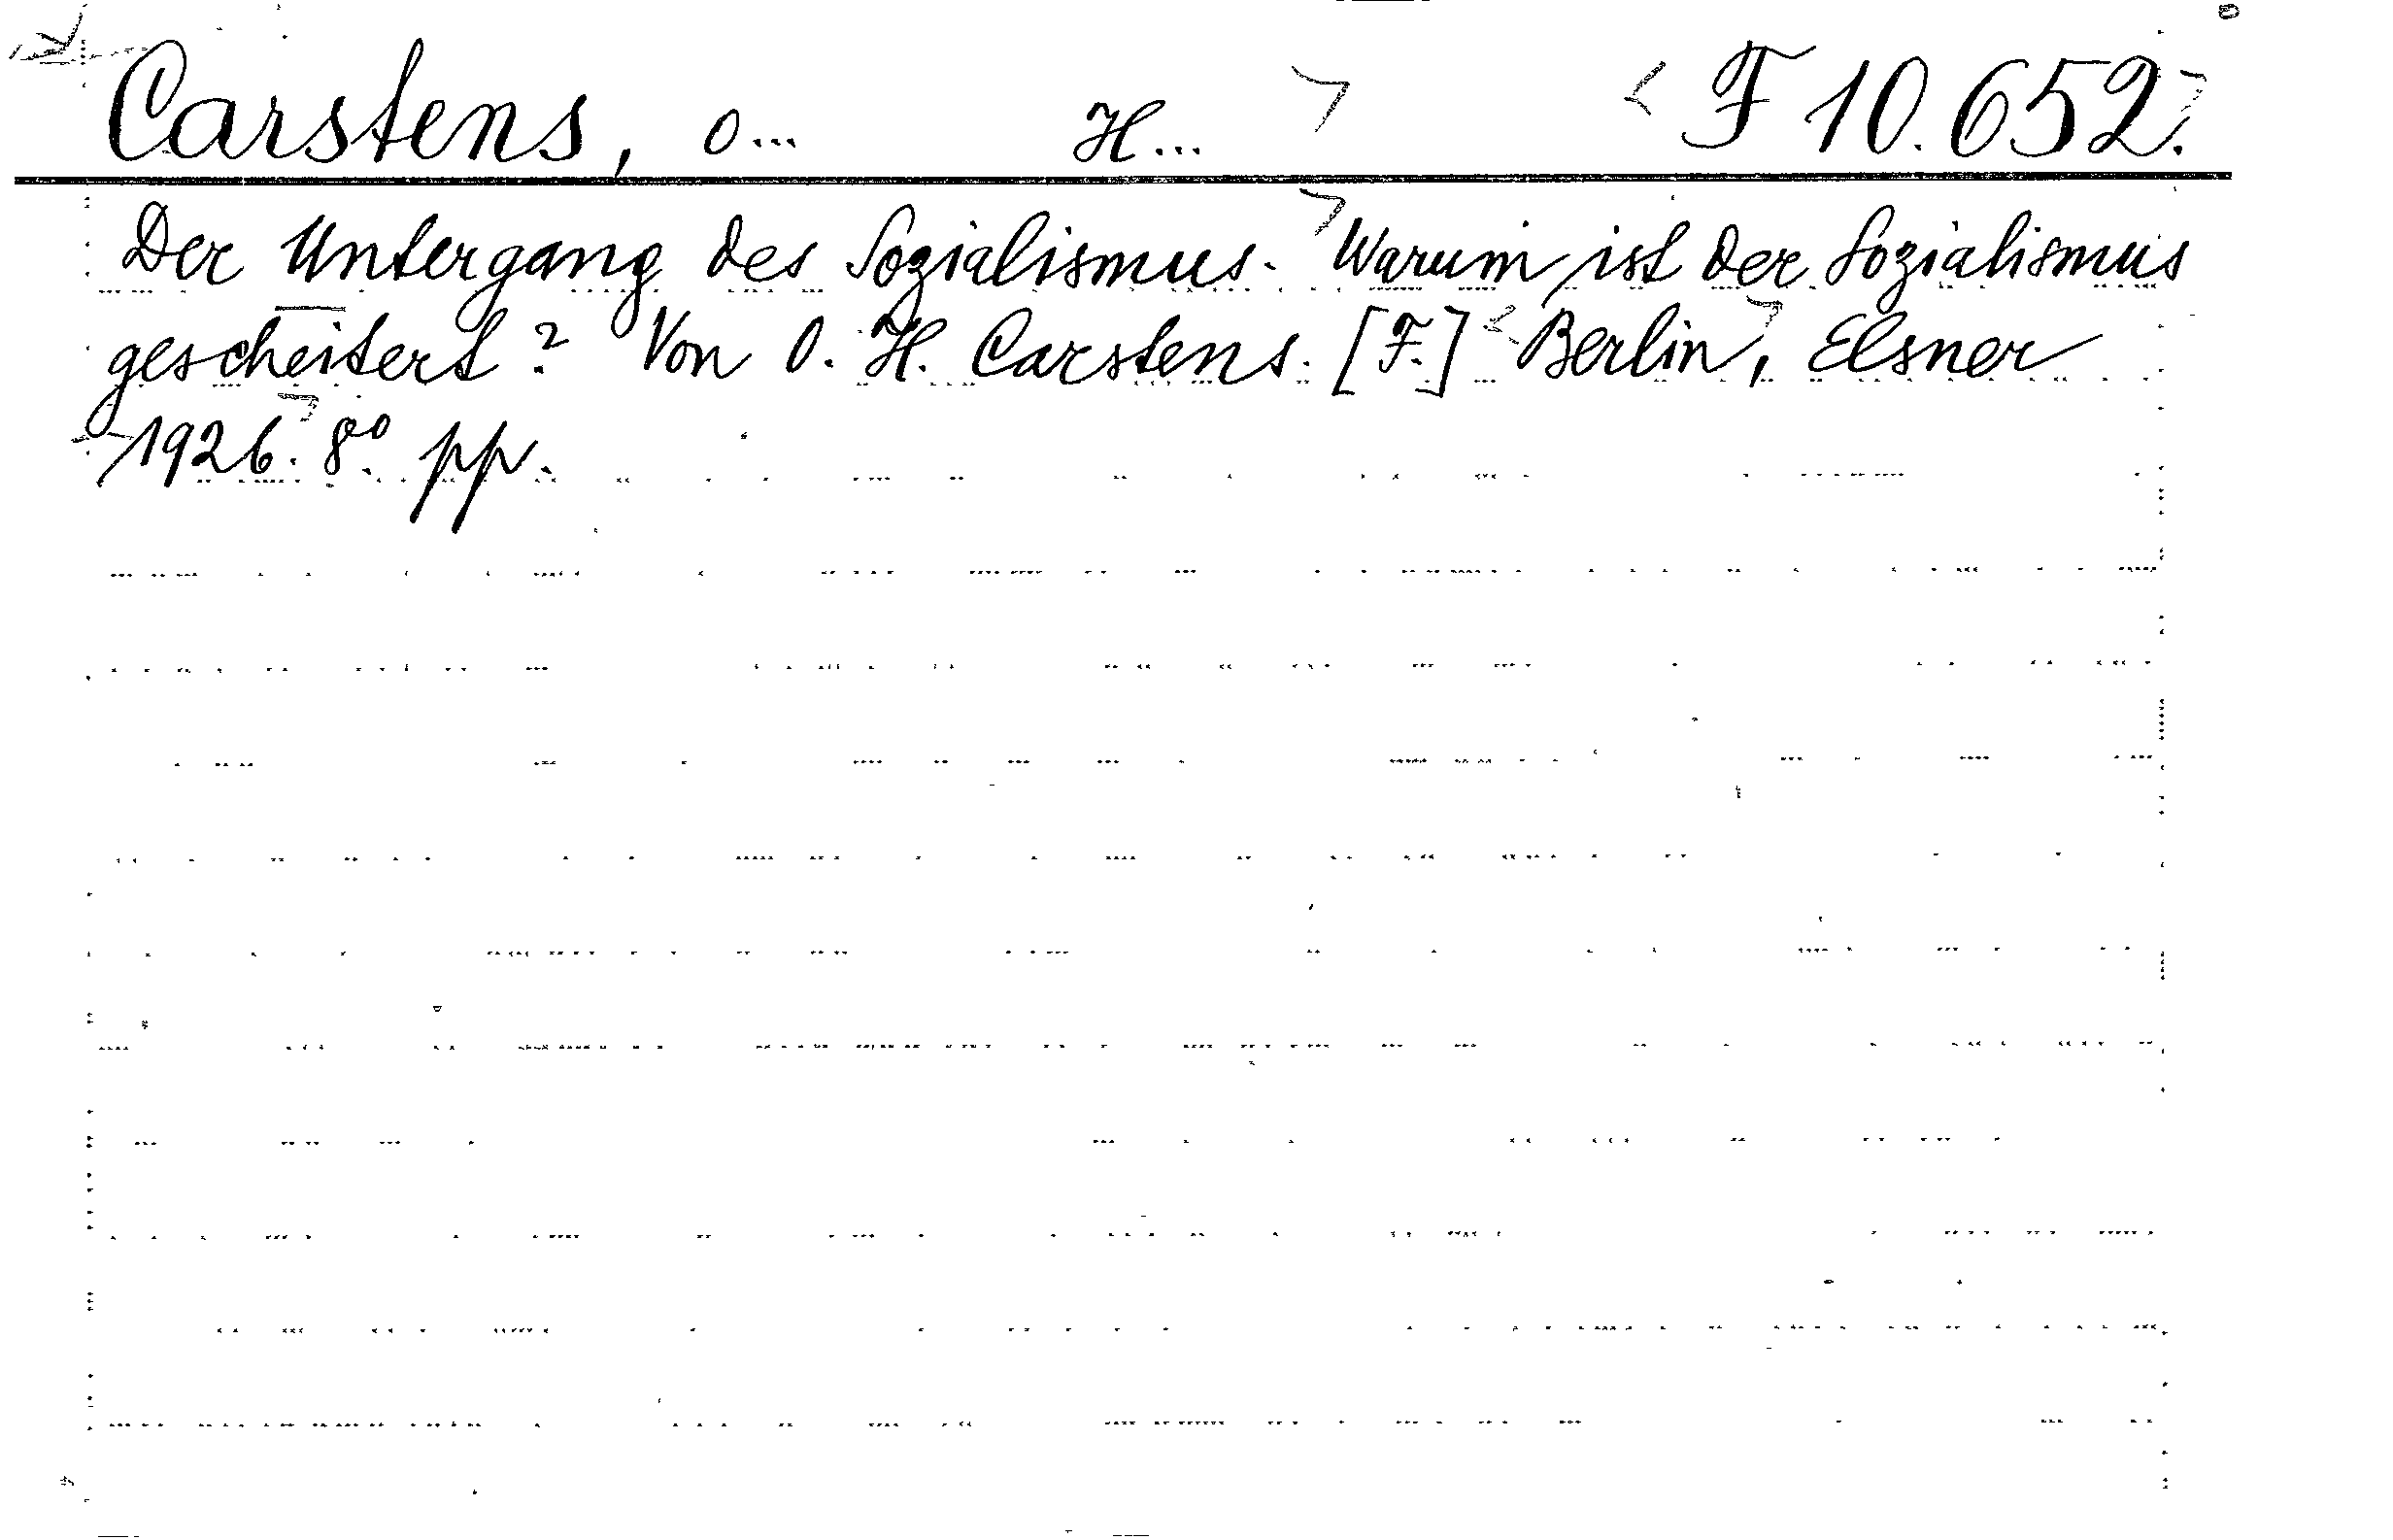 Carstens, O... H... F 10.652.
Der Untergang des Sozialismus. Warum ist der Sozialismus
gescheitert? Von O. H. Carstens. [F.] Berlin, Elsner
1926. 8°. pp.